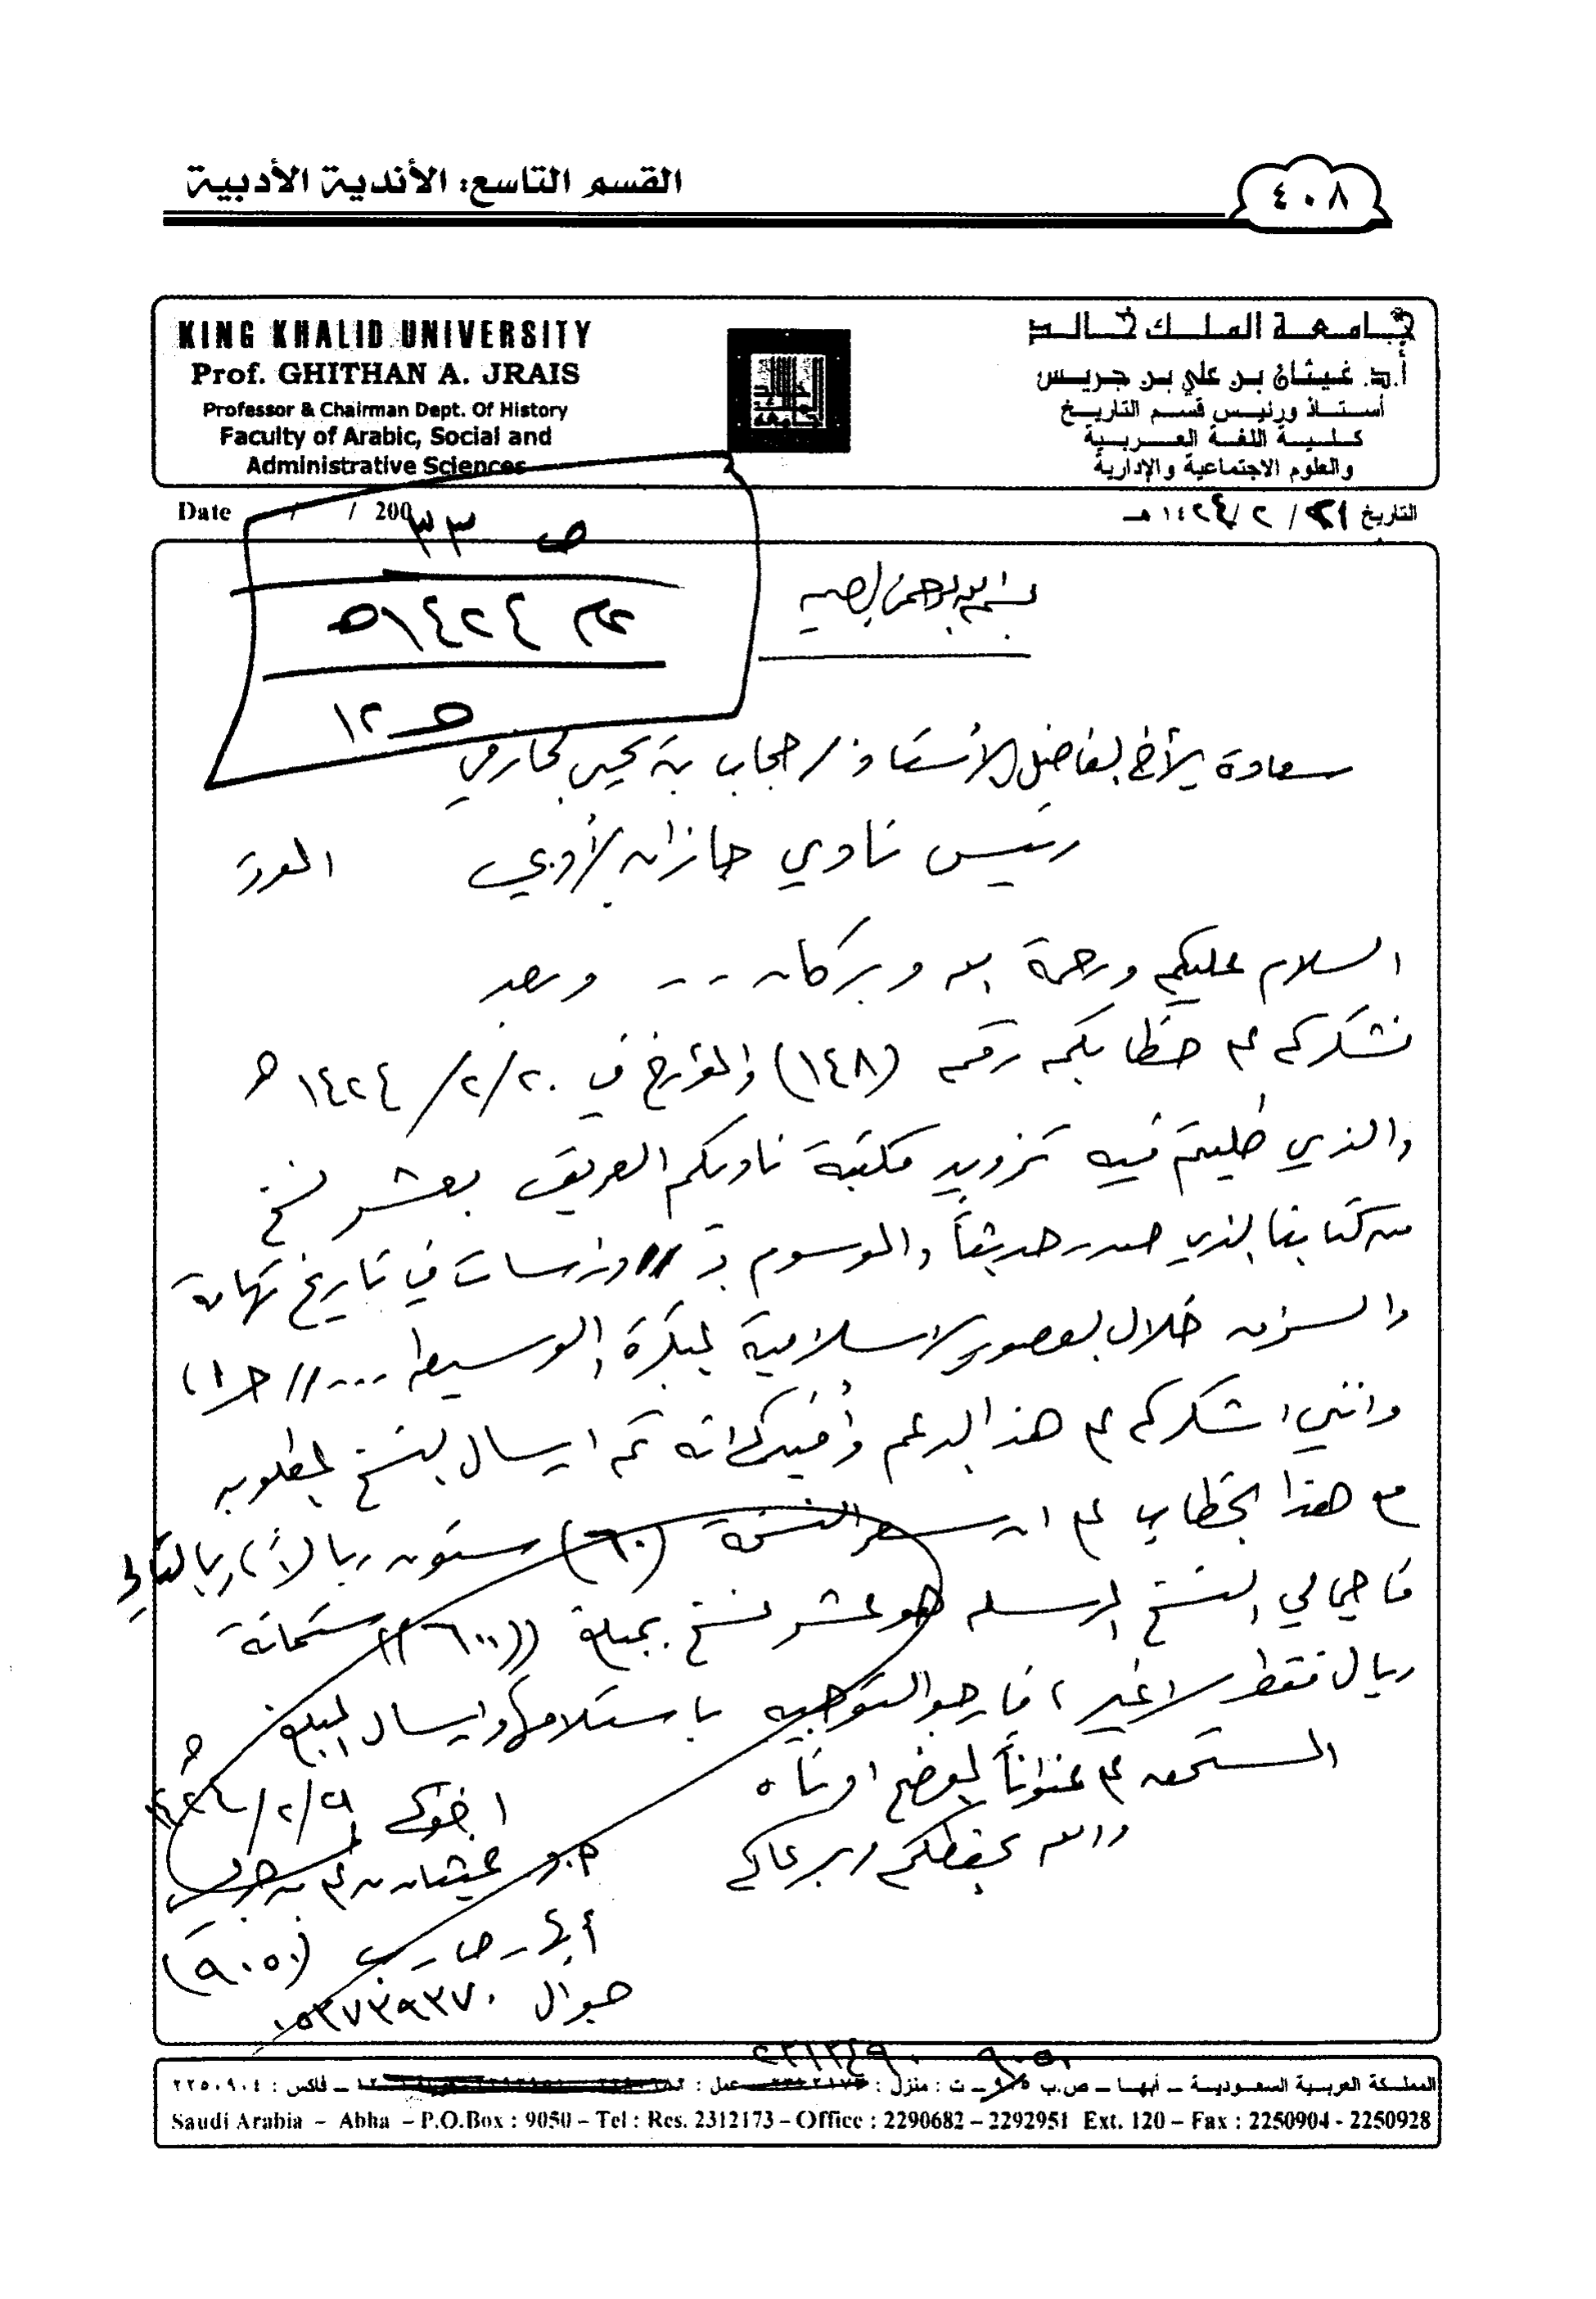 القسم التاسع: الأندية الأدبية
٤٠٨
KING KHALID UNIVERSITY
Prof. GHITHAN A. JRAIS
Professor & Chairman Dept. Of History
Faculty of Arabic, Social and
Administrative Sciences
جامعة الملك خالد
أ.د. غيثان بن علي بن جريس
أستاذ ورئيس قسم التاريخ
كلية اللغة العربية
والعلوم الاجتماعية والإدارية
Date / / 200
التاريخ ٢١/ ٢ /١٤٢٤هـ
ص ٣٣
عام ١٤٢٤هـ
١٢
بسم الله الرحمن الرحيم
سعادة الأخ الفاضل الأستاذ / حجاب بن يحيى الحازمي
رئيس نادي جازان الأدبي الموقر
السلام عليكم ورحمة الله وبركاته -- وبعد
نشكركم على خطابكم رقم (١٤٨) والمؤرخ في ٢٠/٢/ ١٤٢٤هـ
والذي طلبتم فيه تزويد مكتبة ناديكم العريق بعشر نسخ
من كتابنا الذي صدر حديثاً والموسوم بـ // دراسات في تاريخ تهامة
والسراة خلال العصور الاسلامية المبكرة والوسيطة ... // جـ١،
وانني اشكركم على هذا الدعم وأفيدكم انه تم ارسال النسخ المطلوبة
مع هذا الخطاب على ان سعر النسخة (٦٠) ستون ريالاً، وبالتالي
فاجمالي النسخ المرسلة هو عشر نسخ بمبلغ ((٦٠٠)) ستمائة
ريال فقط لا غير، فأرجو التوجيه باستلامها وارسال المبلغ
المستحق على عنواننا الموضح ادناه
والله يحفظكم ويرعاكم
اخوكم ٢١/ ٢/ ١٤٢٤هـ
أ.د غيثان بن علي بن جريس
أبها - ص.ب (٩٠٥٠)
جوال ٠٥٣٧٣٩٣٧٠
٩٠٥٠
المملكة العربية السعودية ــ أبهـا ــ ص.ب ــ ت : منزل : عمل : ــ فاكس : ٢٢٥٠٩٠٤
Saudi Arabia – Abha – P.O.Box : 9050 – Tel : Res. 2312173 – Office : 2290682 – 2292951 Ext. 120 – Fax : 2250904 - 2250928